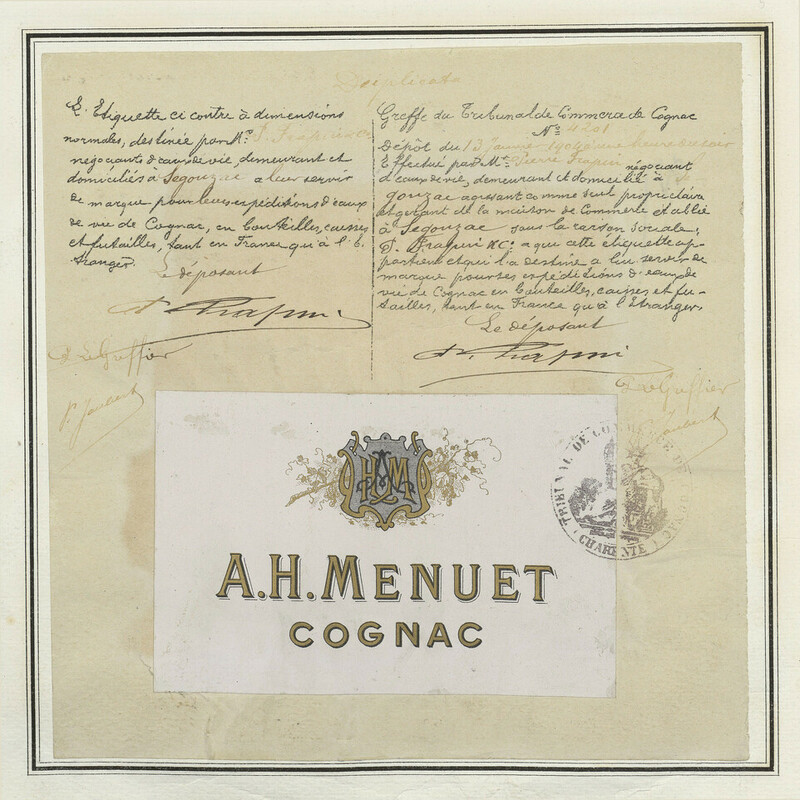 Duplicata
L'Etiquette ci contre à dimensions
normales, destinée par Mr. P. Frapin & Co
négociants d'eaux de vie, demeurant et
domiciliés à Segonzac a leur servir
de marque pour leurs expéditions d'eaux
de vie de Cognac, en bouteilles, caisses
et futailles, tant en France qu'à l'E-
tranger.
Le déposant
P. Frapin
Le Greffier
P. Joubert
Greffe du Tribunal de Commerce de Cognac
No 4201
Dépôt du 13 Janvier une heure du soir
Effectué par Mr. Pierre Frapin négociant
d'eaux de vie, demeurant et domicilié à S
gonzac agissant comme seul propriétaire
et gérant de la maison de Commerce établie
à Segonzac sous la raison sociale,
P. Frapin & Co. a qui cette étiquette ap-
partient et qui l'a destine a lui servir de
marque pour ses expéditions d'eaux de
vie de Cognac en bouteilles, caisses et fu-
tailles, tant en France qu'à l'Etranger,
Le déposant
P. Frapin
Le Greffier
Joubert
TRIBUNAL DE COMMERCE DE COGNAC
CHARENTE
AHM
A.H.MENUET
COGNAC